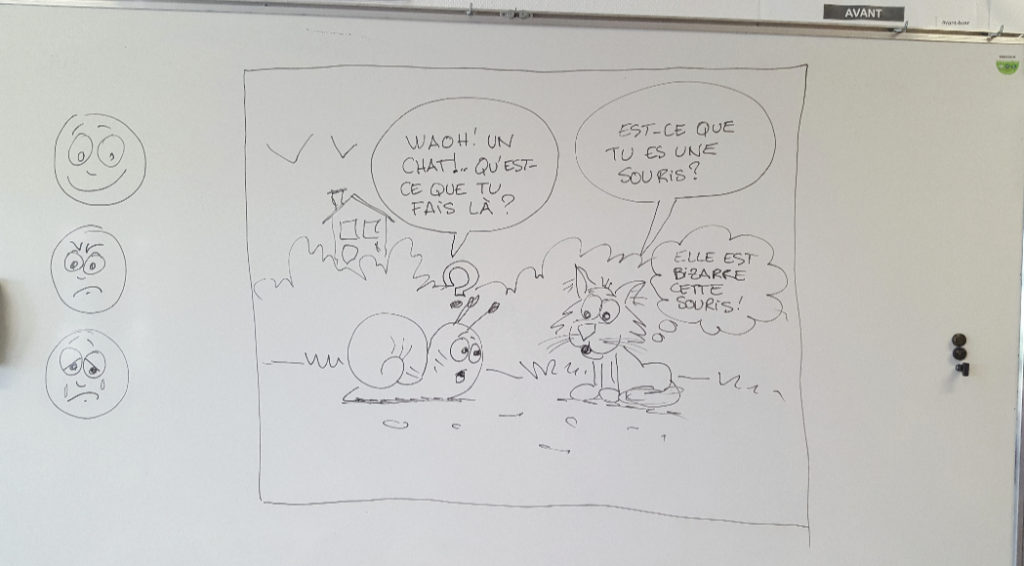 AVANT
WAOH! UN
CHAT!.. QU'EST-
CE QUE TU
FAIS LÀ?
EST-CE QUE
TU ES UNE
SOURIS?
ELLE EST
BIZARRE
CETTE
SOURIS!
?